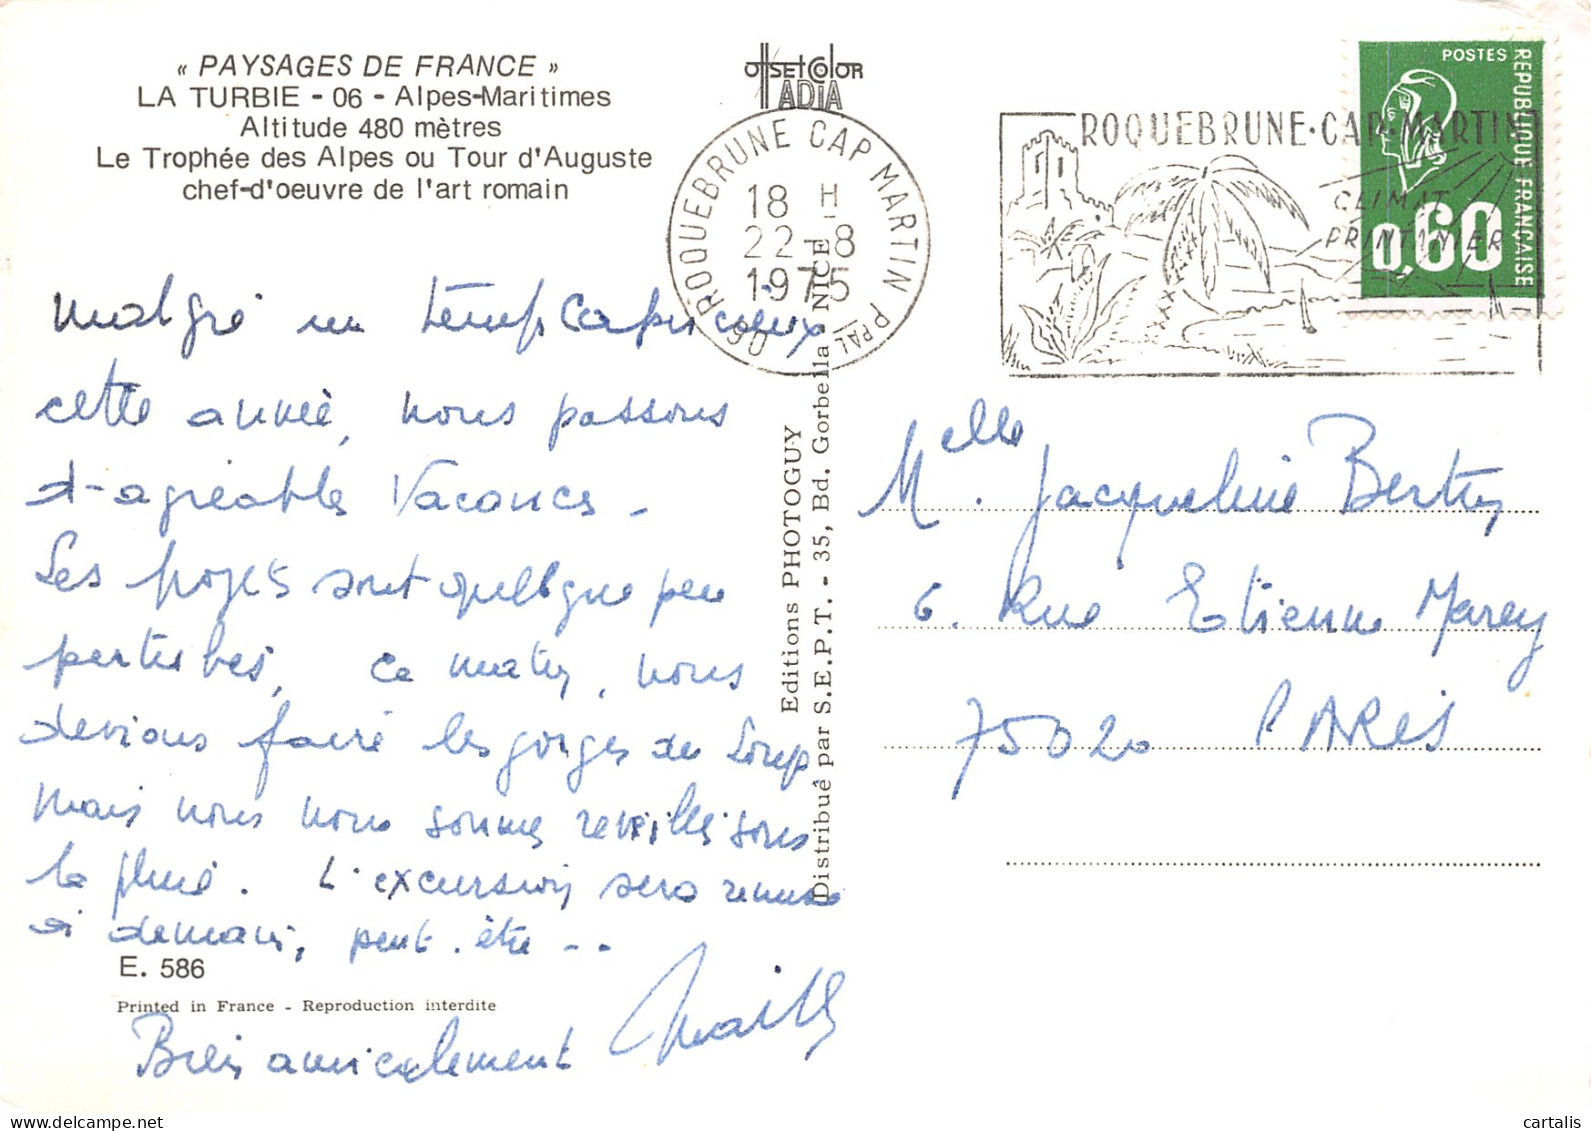 « PAYSAGES DE FRANCE »
LA TURBIE - 06 - Alpes-Maritimes
Altitude 480 mètres
Le Trophée des Alpes ou Tour d'Auguste
chef-d'oeuvre de l'art romain
OffsetColor
IADIA
ROQUEBRUNE CAP MARTIN PPAL
06
18 H
22 - 8
1975
ROQUEBRUNE·CAP·MARTIN
CLIMAT
PRINTANIER
POSTES
REPUBLIQUE FRANÇAISE
0,60
malgré un temps capricieux
cette année, nous passons
d'agréables Vacances -
Les projets sont quelque peu
perturbés, ce matin, nous
devions faire les gorges du Loup
mais nous nous sommes réveillés sous
la pluie. L'excursion sera remise
à demain, peut-être --
Bien amicalement
E. 586
Printed in France - Reproduction interdite
Editions PHOTOGUY
Distribué par S.E.P.T. - 35, Bd. Gorbella NICE
Melle. Jacqueline Berthy
6. Rue Etienne Marey
75020 PARIS
delcampe.net
cartalis